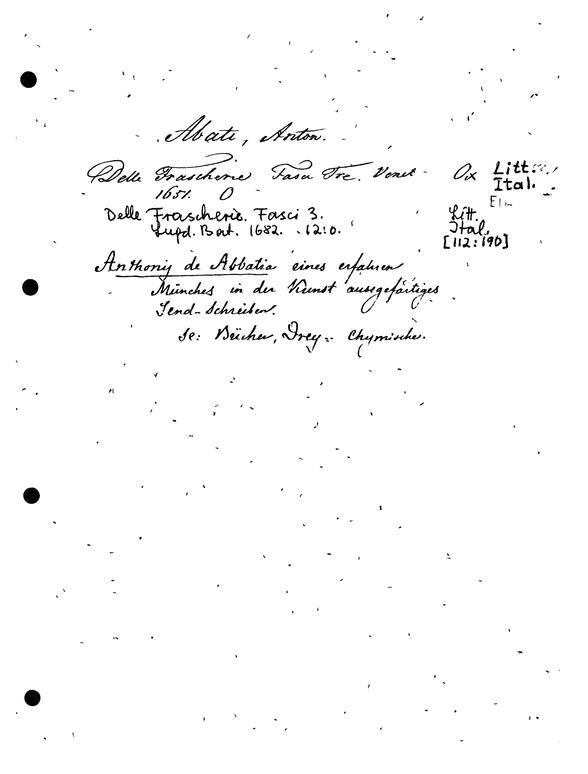 Abati, Anton.
Delle Frascherie Fasci Tre. Venet. Ox Litt.
1651. O Ital.
Delle Frascherie. Fasci 3. Litt.
Lugd. Bat. 1682. 12:o. Ital.
[112:190]
Anthonij de Abbatia eines erfahren
Münches in der Kunst ausgefärtiges
Send-Schreiben.
se: Bücher, Drey-. Chymische.